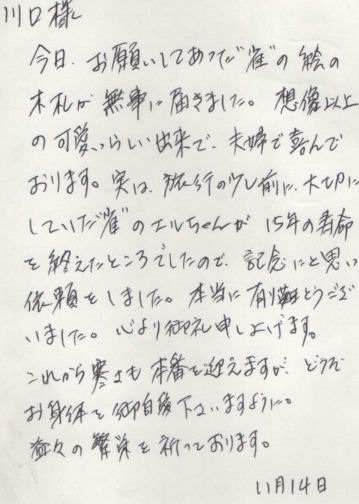 川口様
今日、お願いしてあった"雀"の絵の
木札が無事に届きました。想像以上
の可愛いらしい出来で、夫婦で喜んで
おります。実は、旅行の少し前に、大切に
していた"雀"のエルちゃんが 15年の寿命
を終えたところでしたので、記念にと思い
依頼をしました。本当に有難とうござ
いました。心より御礼申し上げます。
これから寒さも本番を迎えますが、どうぞ
お身体を御自愛下さいますように。
益々の繁栄を祈っております。
11月14日